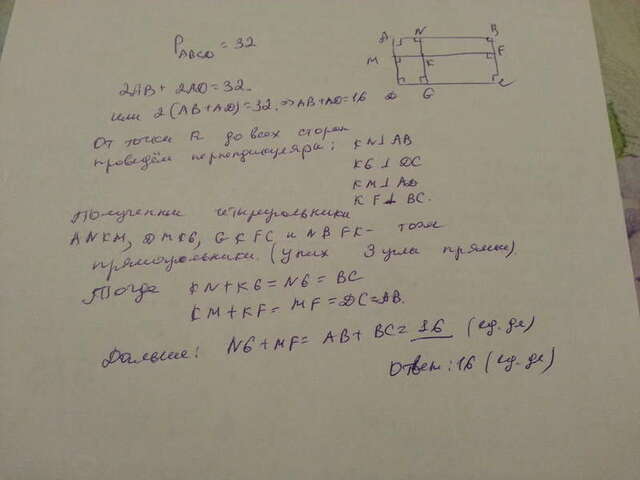 P ABCD = 32
2AB + 2AD = 32.
или 2(AB+AD)=32. => AB+AD=16
A N B
M K F
D G C
От точки K до всех сторон
проведём перпендикуляры: KN⊥AB
KG⊥DC
KM⊥AD
KF⊥BC.
Полученные четырёхугольники
ANKM, DMKG, GKFC и NBFK - тоже
прямоугольники. (у них 3 угла прямые)
Тогда KN+KG = NG = BC
KM+KF = MF = DC=AB.
Дальше: NG+MF = AB+BC= 16 (ед. дл)
Ответ: 16 (ед. дл)